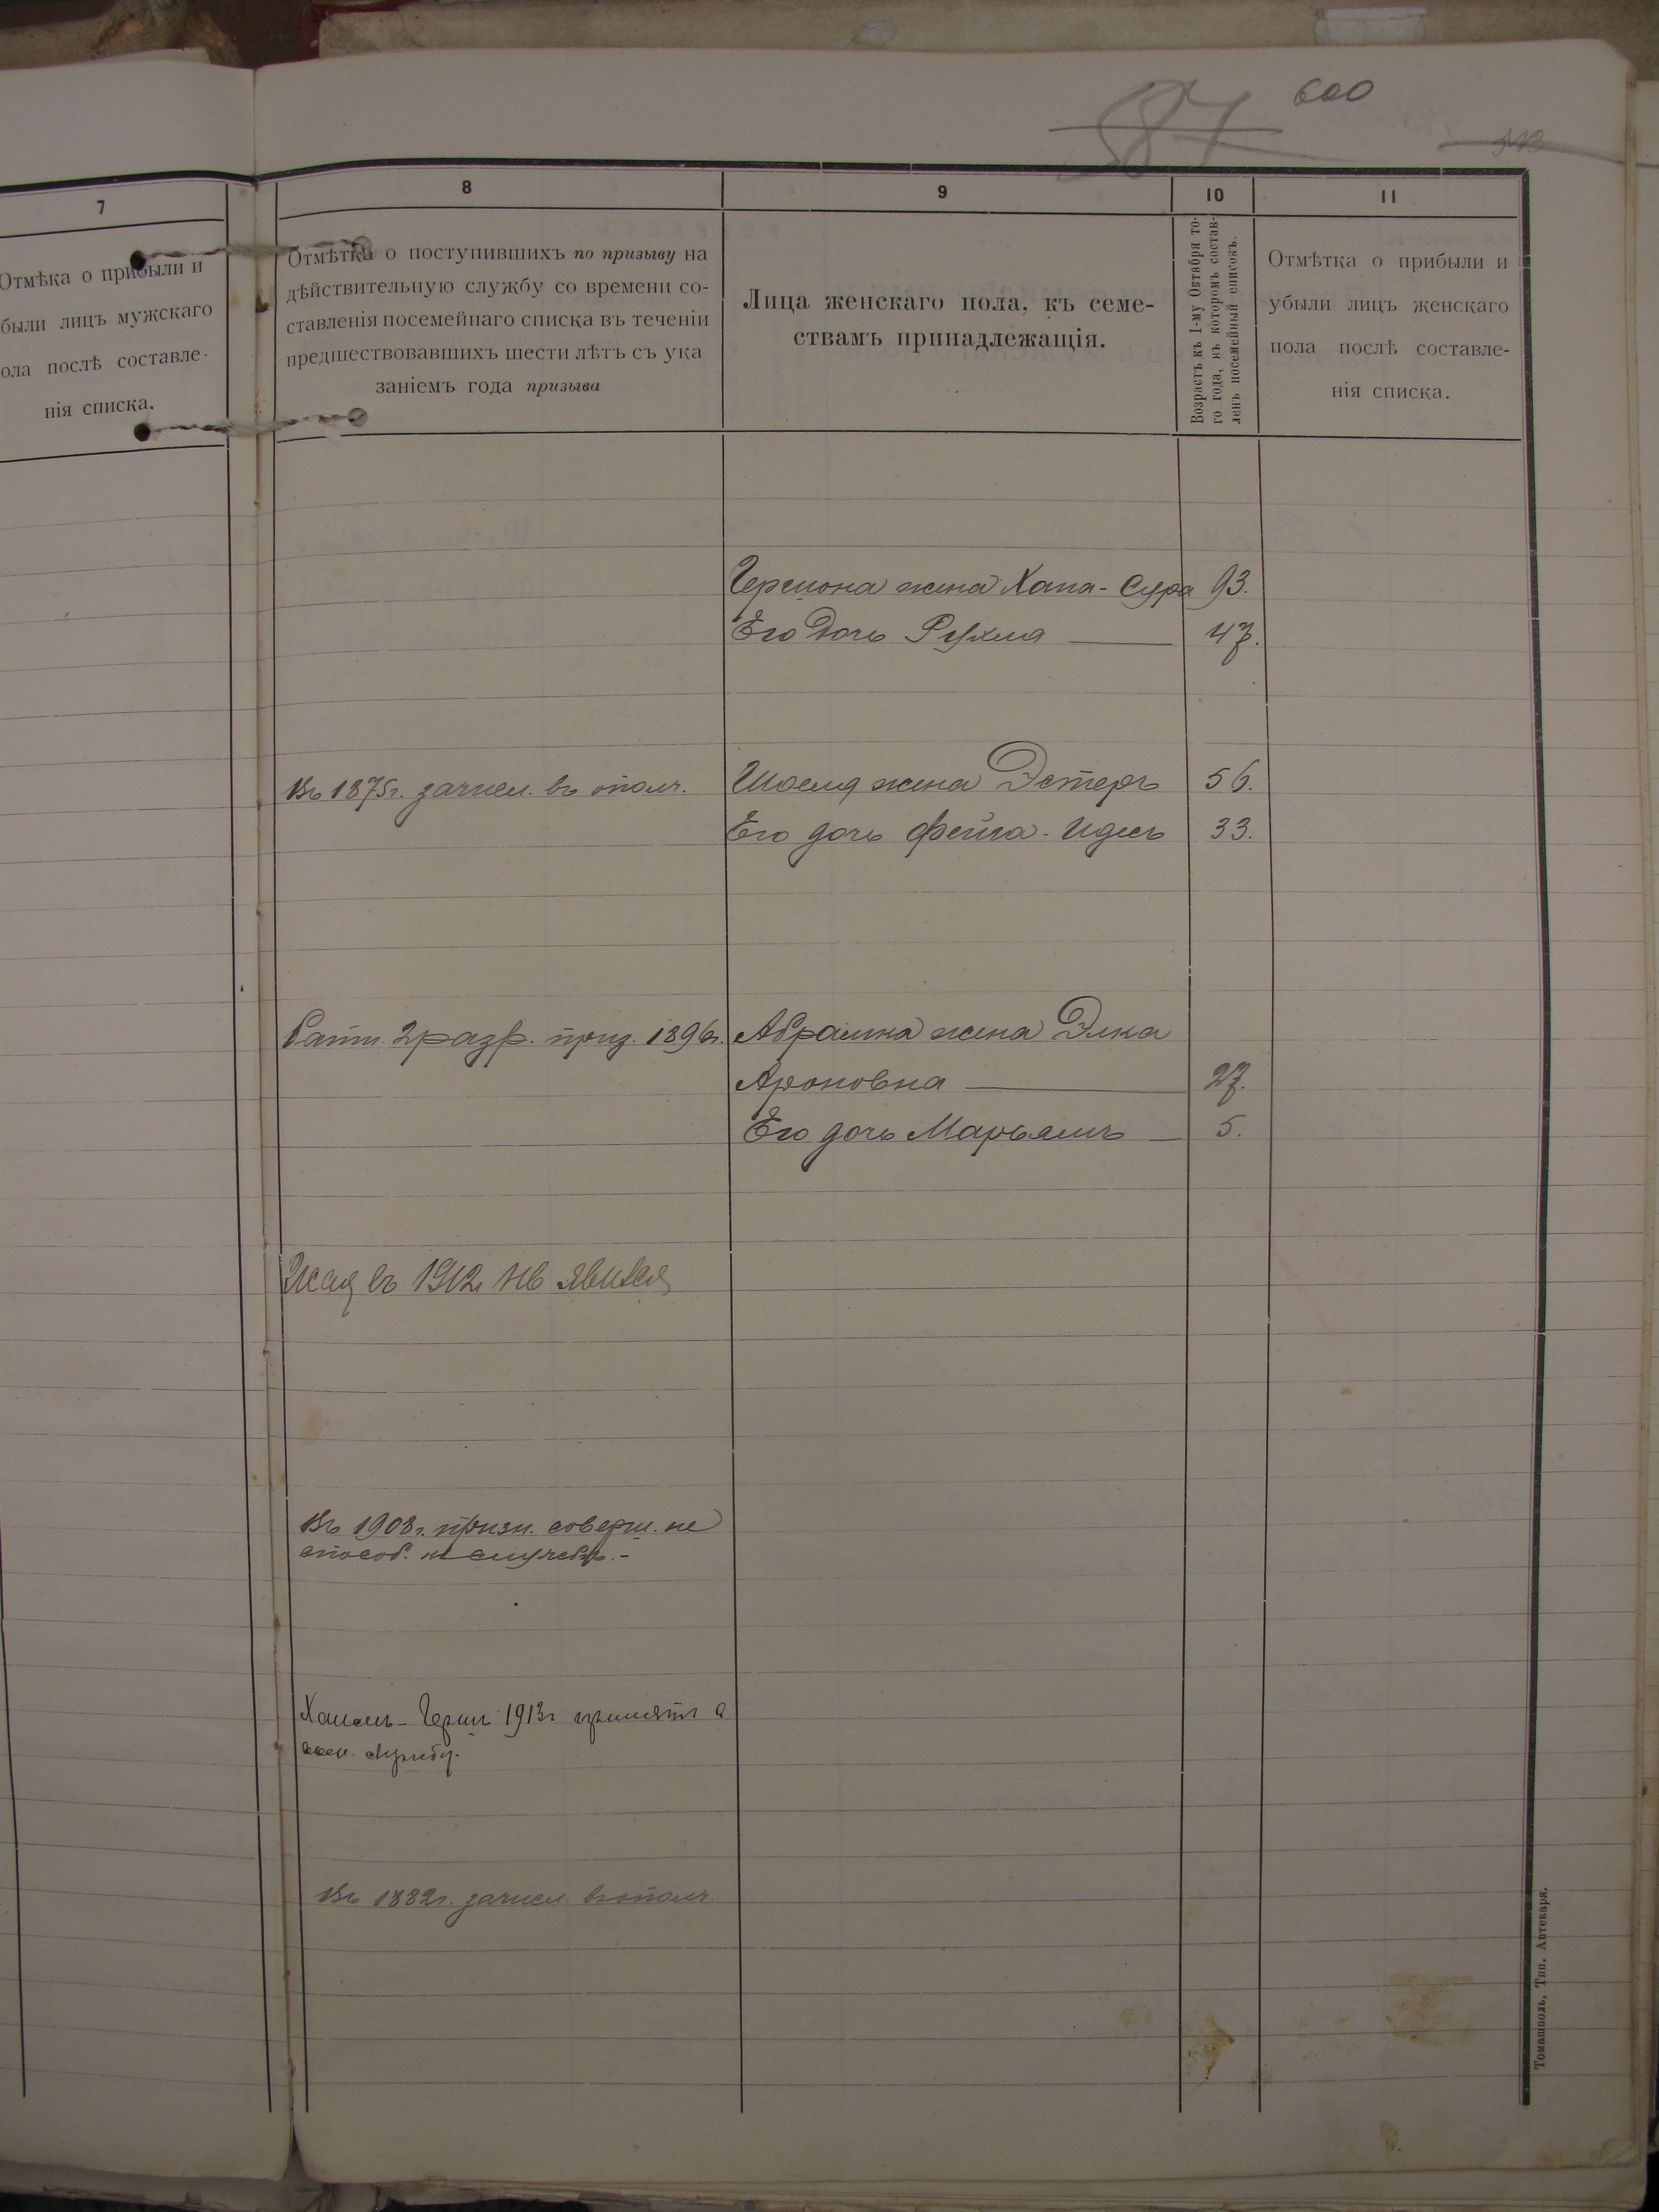 600
587
7
Отмѣка о прибыли и
были лицъ мужскаго
ола послѣ составле-
нія списка.
8
Отмѣтка о поступившихъ по призыву на
дѣйствительную службу со времени со-
ставленія посемейнаго списка въ теченіи
предшествовавшихъ шести лѣтъ съ ука
заніемъ года призыва
9
Лица женскаго пола, къ семе-
ствамъ принадлежащія.
10
Возрастъ къ 1-му Октября то-
го года, къ которомъ состав-
ленъ посемейный списокъ.
11
Отмѣтка о прибыли и
убыли лицъ женскаго
пола послѣ составле-
нія списка.
Гершона жена Хана-Сура 93.
Его дочь Рухля 47.
Въ 1875г. зачисл. въ ополч.
Шоеля жена Эстеръ 56.
Его дочь Фейга-Идесъ 33.
Ратн. 2 разр. приз. 1896г.
Абрамка жена Элка
Ароновна 27.
Его дочь Марьямъ 5.
въ 1912г не явился
Въ 1908г. призн. соверш. не
способ. къ службѣ.-
Хаимъ-Герш 1913г принятъ
службу.
Въ 1882г. зачисл въ ополч
Томашполь, Тип. Аптекаря.